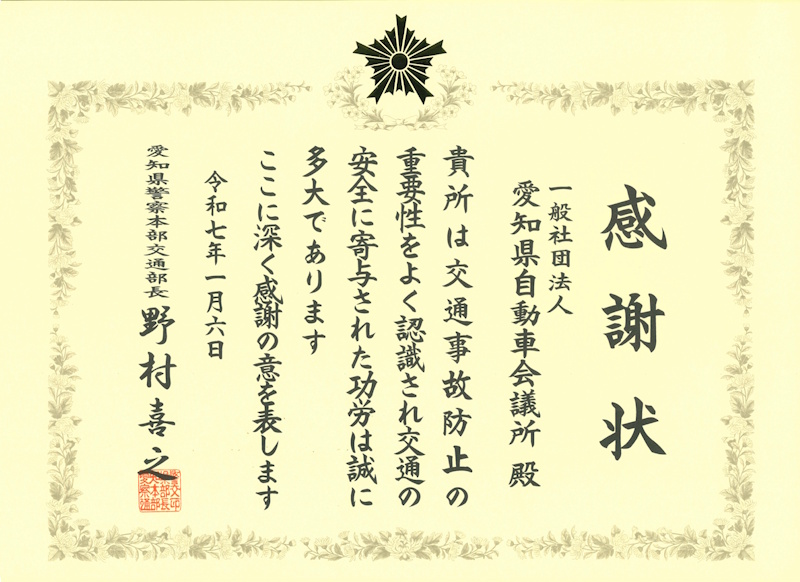 感謝状
一般社団法人
愛知県自動車会議所 殿
貴所は交通事故防止の
重要性をよく認識され交通の
安全に寄与された功労は誠に
多大であります
ここに深く感謝の意を表します
令和七年一月六日
愛知県警察本部交通部長 野村喜之